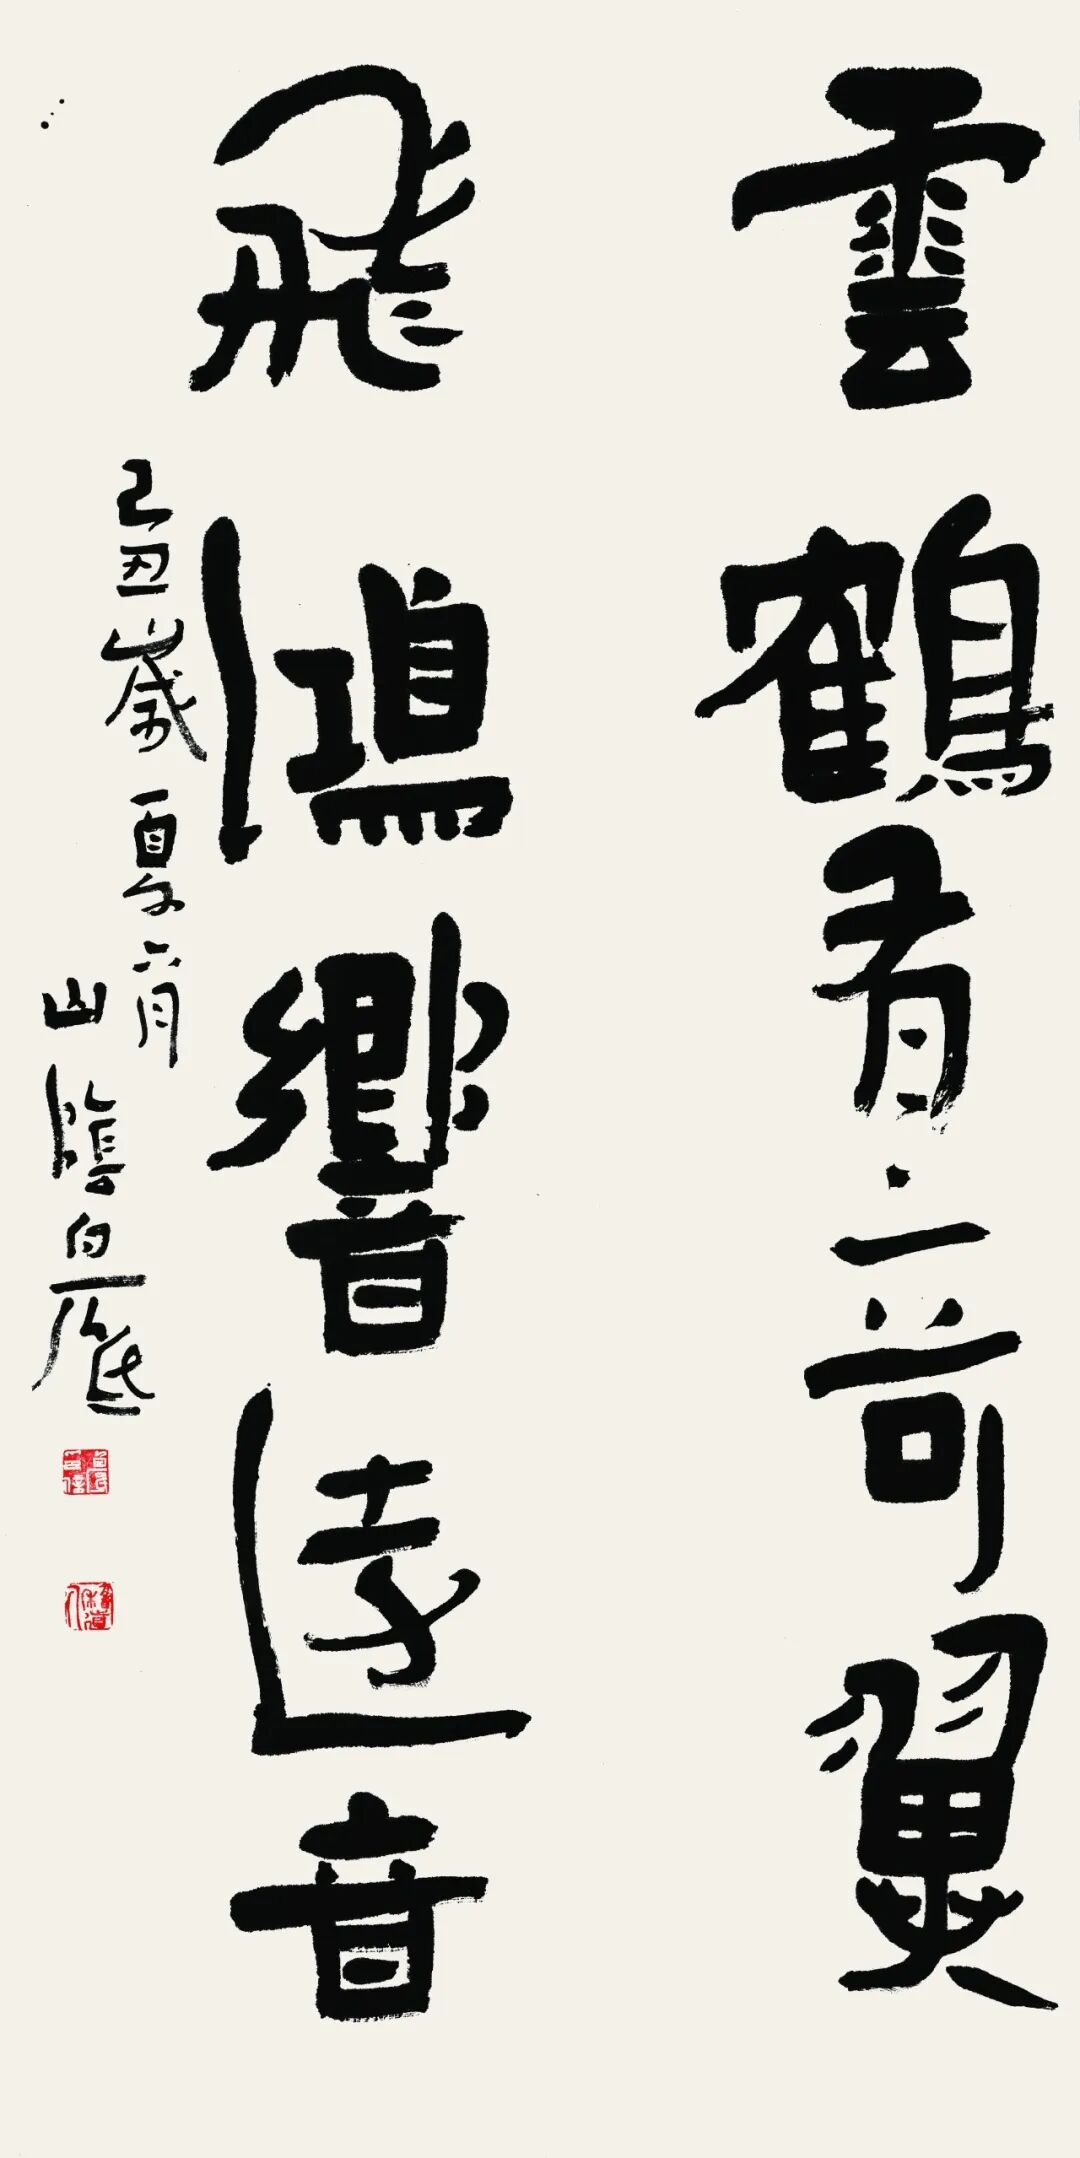 雲鶴有奇翼
飛鴻響遠音
己丑歲夏六月
山陰白砥